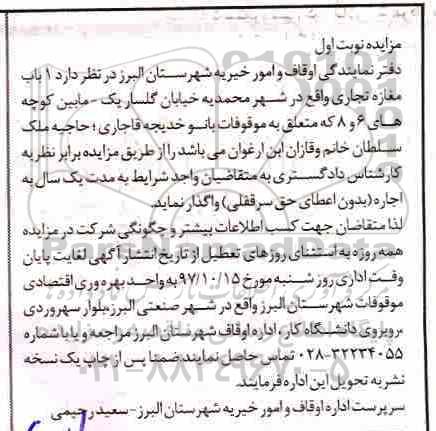 مزایده نوبت اول
دفتر نمایندگی اوقاف و امور خیریه شهرستان البرز در نظر دارد ۱ باب
مغازه تجاری واقع در شهر محمدیه خیابان گلسار یک - مابین کوچه
های ۶ و ۸ که متعلق به موقوفات بانو خدیجه قاجاری ؛ حاجیه ملک
سلطان خانم وقازان ابن ارغوان می باشد را از طریق مزایده برابر نظریه
کارشناس دادگستری به متقاضیان واجد شرایط به مدت یک سال به
اجاره (بدون اعطای حق سرقفلی) واگذار نماید.
لذا متقاضان جهت کسب اطلاعات بیشتر و چگونگی شرکت در مزایده
همه روزه به استثنای روزهای تعطیل از تاریخ انتشار آگهی لغایت پایان
وقت اداری روز شنبه مورخ ۹۷/۱۰/۱۵ به واحد بهره وری اقتصادی
موقوفات شهرستان البرز واقع در شهر صنعتی البرز،بلوار سهروردی
،روبروی دانشگاه کار، اداره اوقاف شهرستان البرز مراجعه و یا با شماره
۰۲۸-۳۲۲۳۴۰۵۵ تماس حاصل نمایند.ضمنا پس از چاپ یک نسخه
نشریه تحویل این اداره فرمایند.
سرپرست اداره اوقاف و امور خیریه شهرستان البرز-سعید رحیمی
ParsNamadData
۰۲۱-۸۸۳۴۹۶۷۰-۵